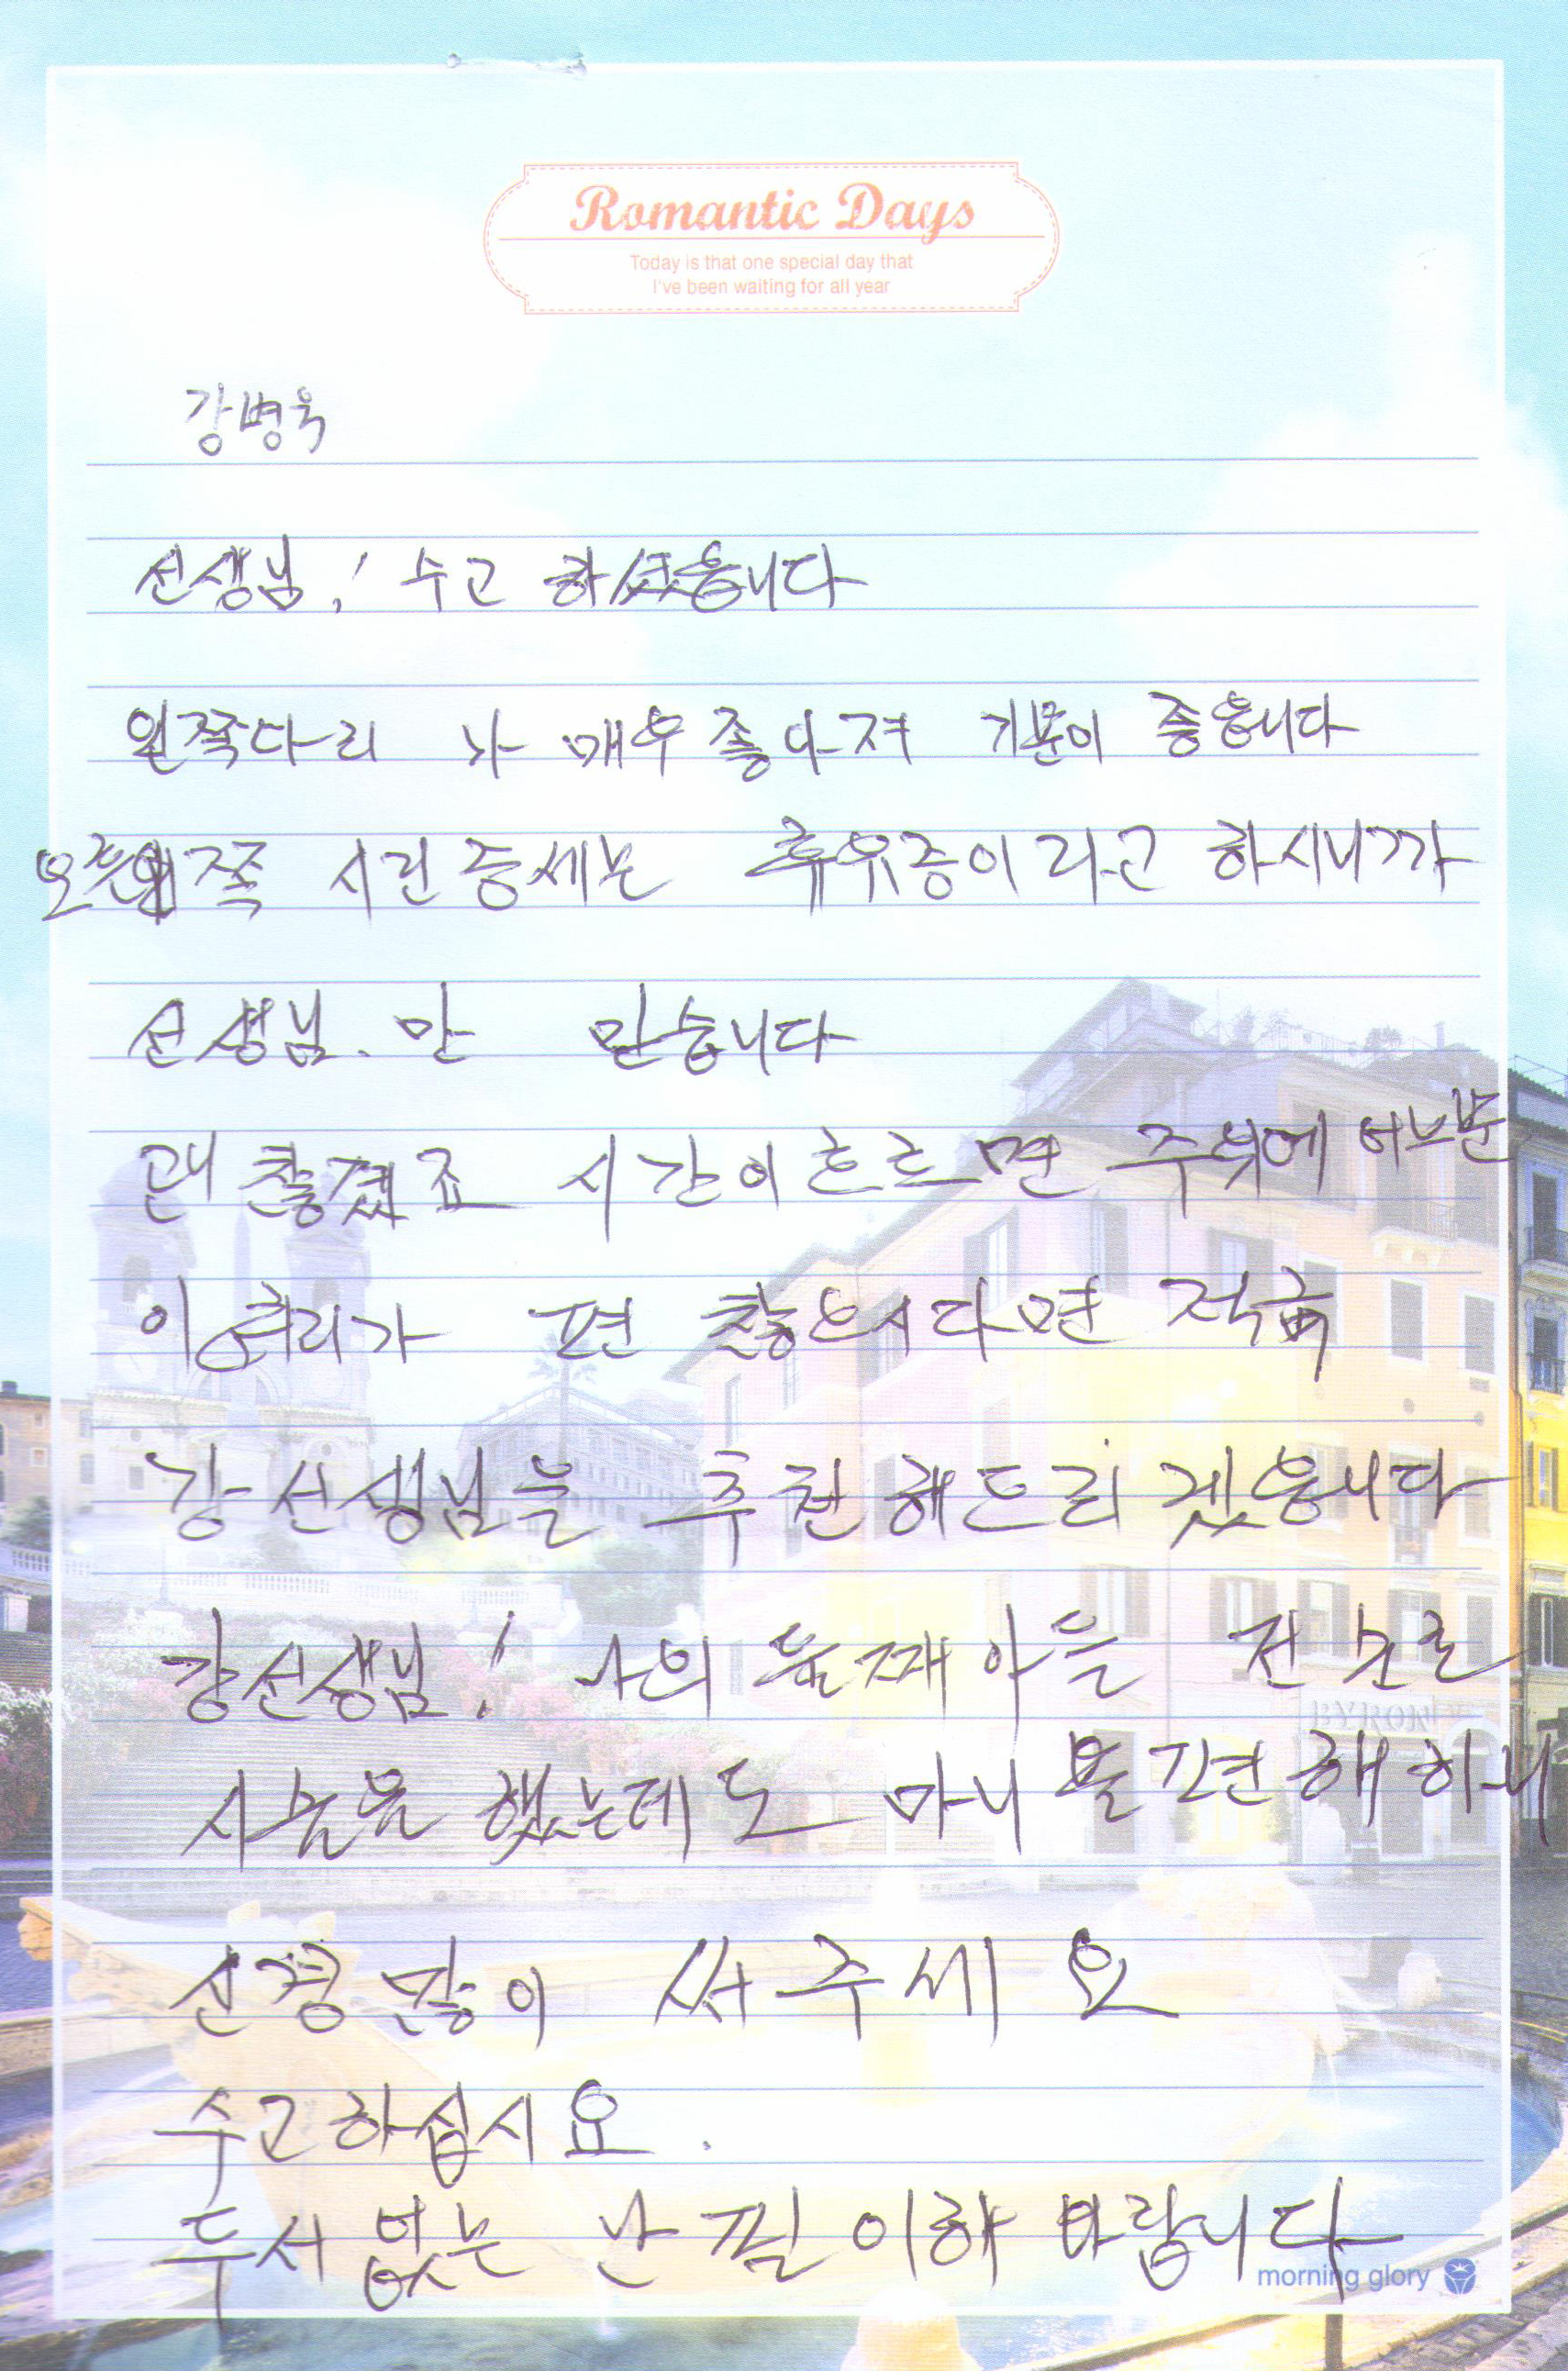 Romantic Days
Today is that one special day that
I've been waiting for all year
강병욱
선생님! 수고 하셨읍니다
왼쪽다리 가 매우 좋아져 기분이 좋읍니다
오른쪽 시린증세는 후유증이라고 하시니까
선생님. 만 믿습니다
괜찮겠죠 시간이흐르면 주위에 어느분
이 허리가 편찮으시다면 적극
강선생님을 추천해드리겠읍니다
강선생님! 나의 둘째아들 전
했는데도 마니 불편해하니
신경많이 써주세요
수고하십시요.
두서없는 난필이해 바랍니다
morning glory